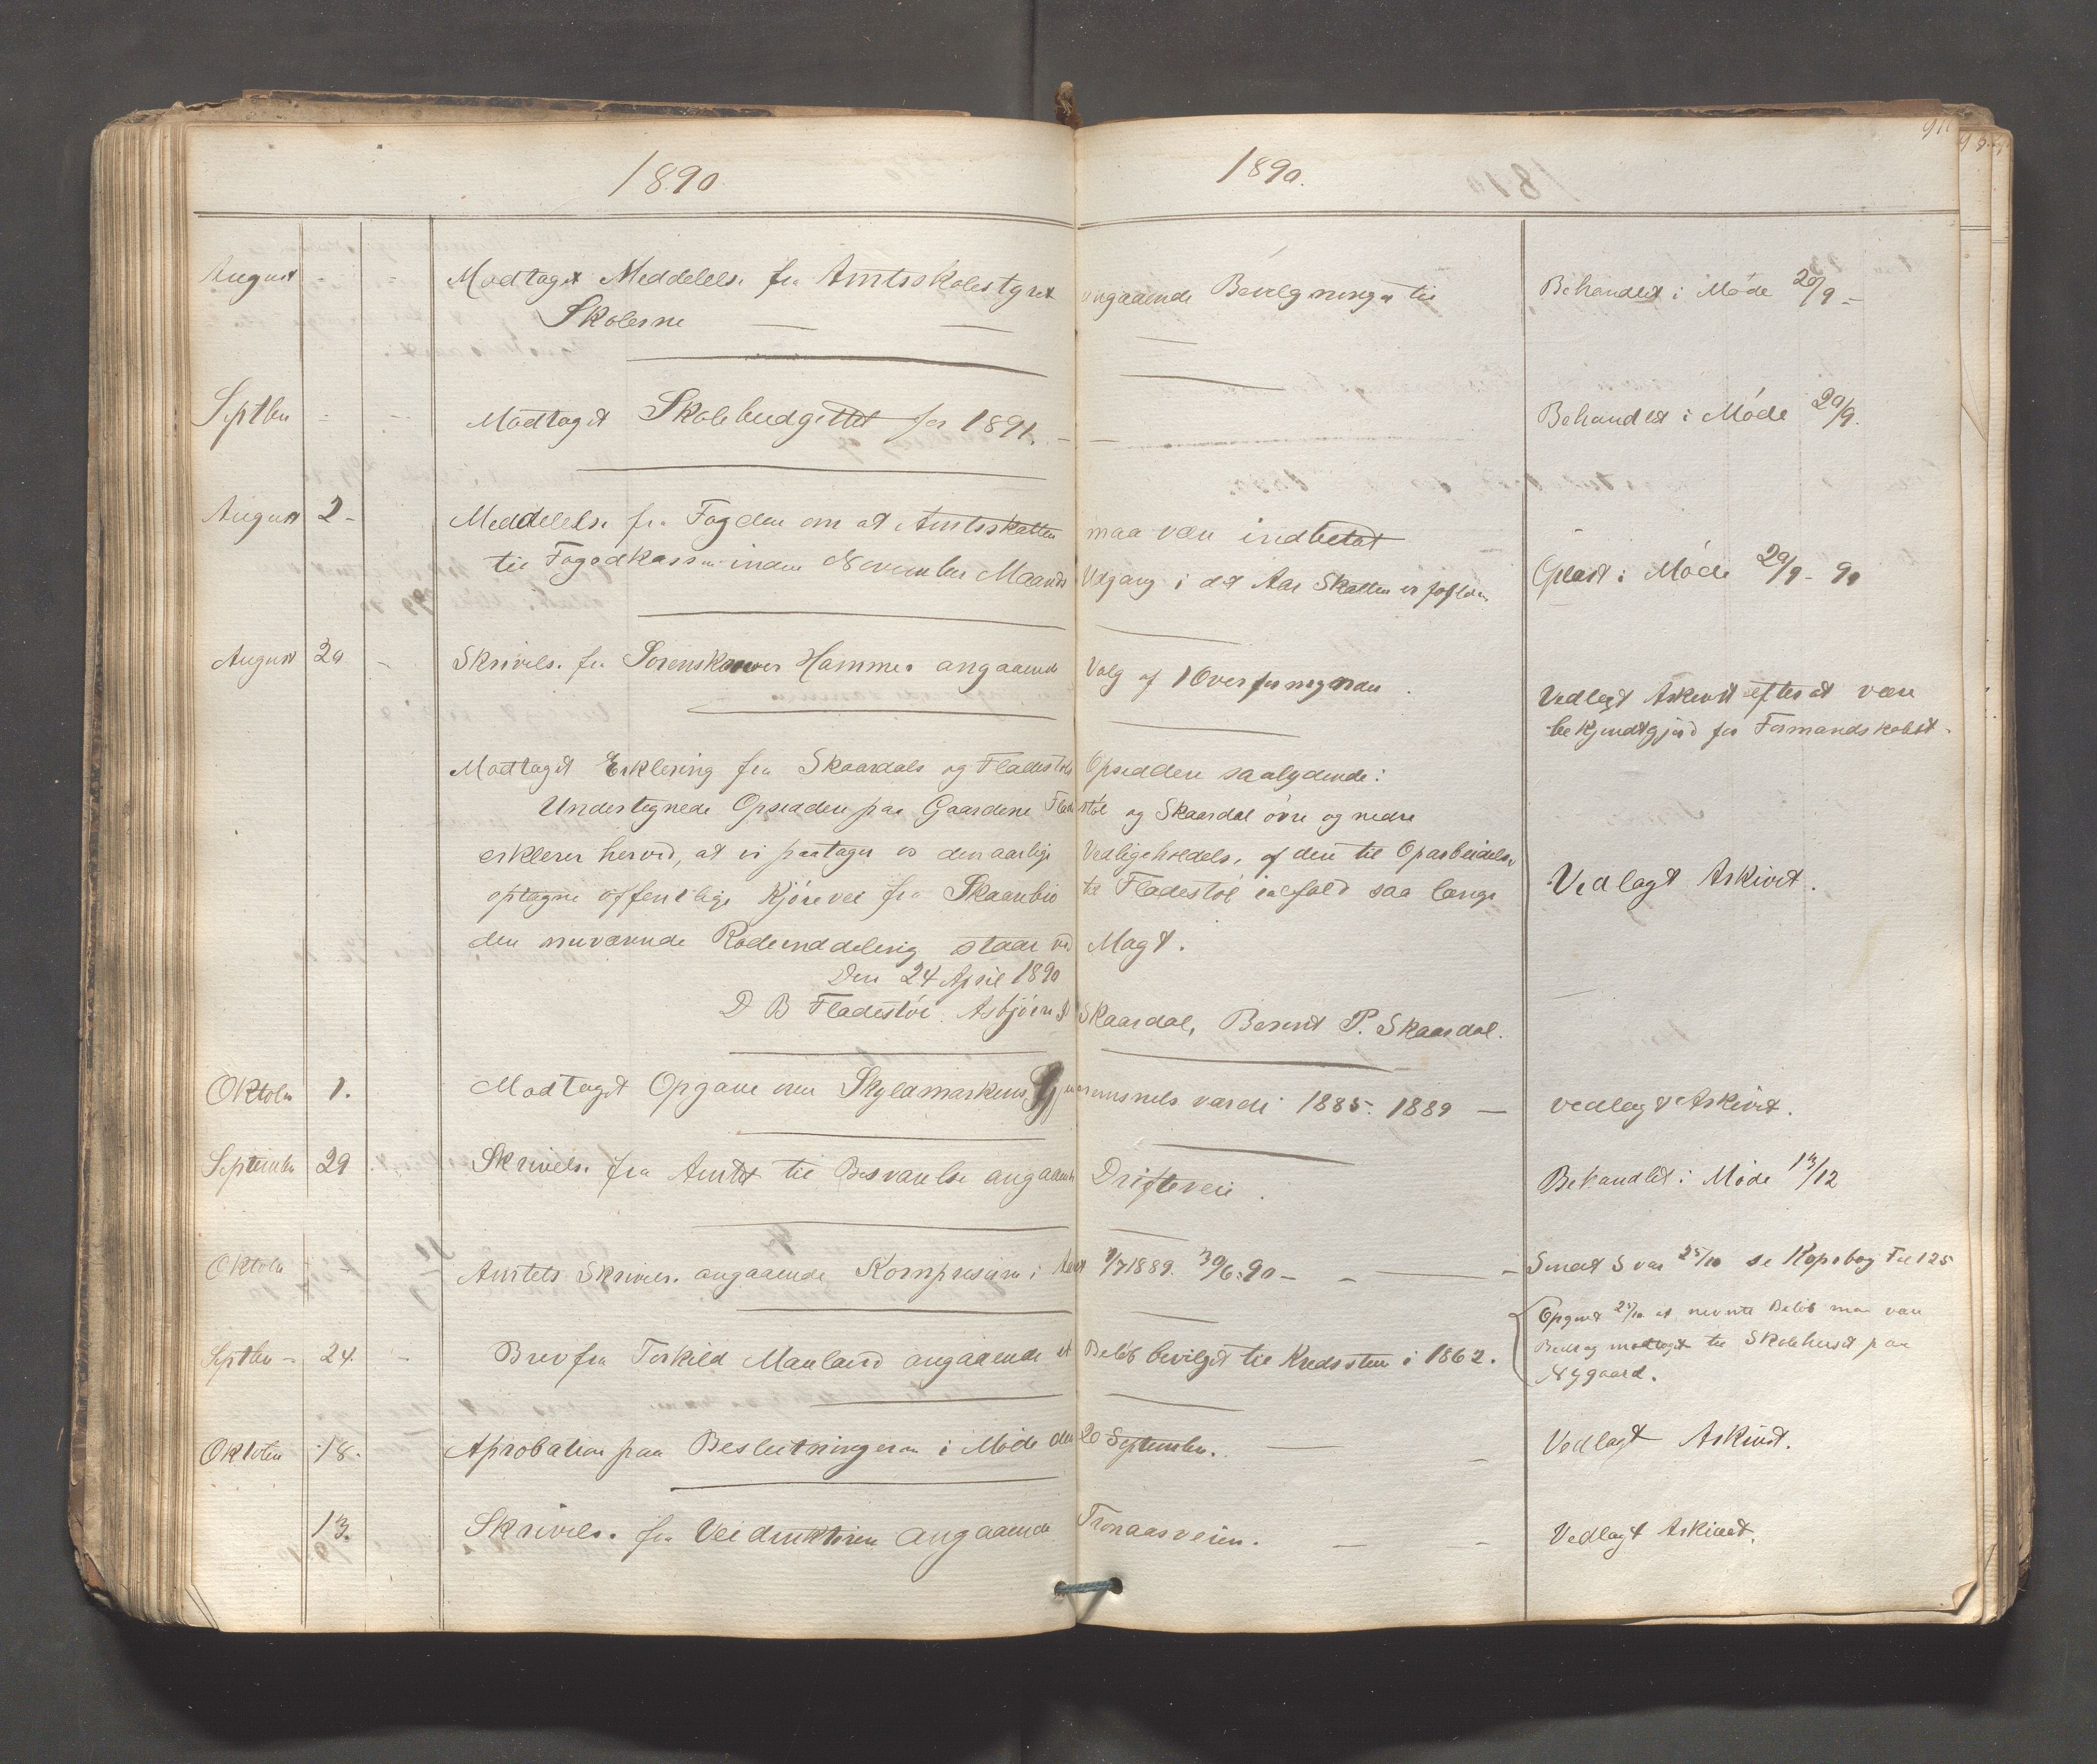 1890 1890.
August - - Modtaget Meddelelse fra Amtsskolestyret angaaende Bevilgninger til Behandlet i Møde 20/9 -
Skolerne
Septbr - - Modtaget Skolebudgettet for 1891. - - Behandlet i Møde 20/9.
August 2 - Meddelelse fra Fogden om at Amtsskatten maa være indbetalt
til Fogedkassen inden November Maaneds Udgang i det Aar Skatten er forfalden Oplæst i Møde 20/9 - 90
August 20 - Skrivelse fra Sorenskriver Hammer angaaende Valg af 1 Overformynder.
Vedlagt Arkivet efter at være
bekjendtgjord for Formandskabet.
Modtaget Erklering fra Skaardals og Fladestøls Opsiddere saalydende:
Undertegnede Opsiddere paa Gaardene Fladestøl og Skaardal øvre og nedre
erklerer herved, at vi paatager os den aarlige Vedligeholdelse af den til Oparbeidelse
optagne offentlige Kjørevei fra Skaarebro til Fladestøl ialfald saa længe Vedlagt Arkivet.
den nuværende Rodeinddeling staar ved Magt.
Den 24 April 1890
D B Fladestøl Asbjørn P Skaardal, Berent P. Skaardal.
Oktobr 1. Modtaget Opgave over Skyldmarkens Gjennemsnits værdi 1885-1889 - Vedlagt Arkivet.
September 29 Skrivelse fra Amtet til Besvarelse angaaende Drifteveie. Behandlet i Møde 13/12
Oktobr - - Amtets Skrivelse angaaende Kornpriserne i Aaret 1/7 1889. 30/6. 90 - - Sendt Svar 25/10 se Kopebog Fol 125
Septbr - 24. - Brev fra Torkild Mauland angaaende et Beløb bevilget til Kredssten i 1862.
Opgivet 25/10 at nevnte Beløb maa være
Bidrag modtaget til Skolehuset paa
Nygaard.
Oktober 18. Aprobation paa Beslutningerne i Møde den 20 September. - Vedlagt Arkivet.
13. Skrivelse fra Veidirektøren angaaende Tronaasveien. - - Vedlagt Arkivet.